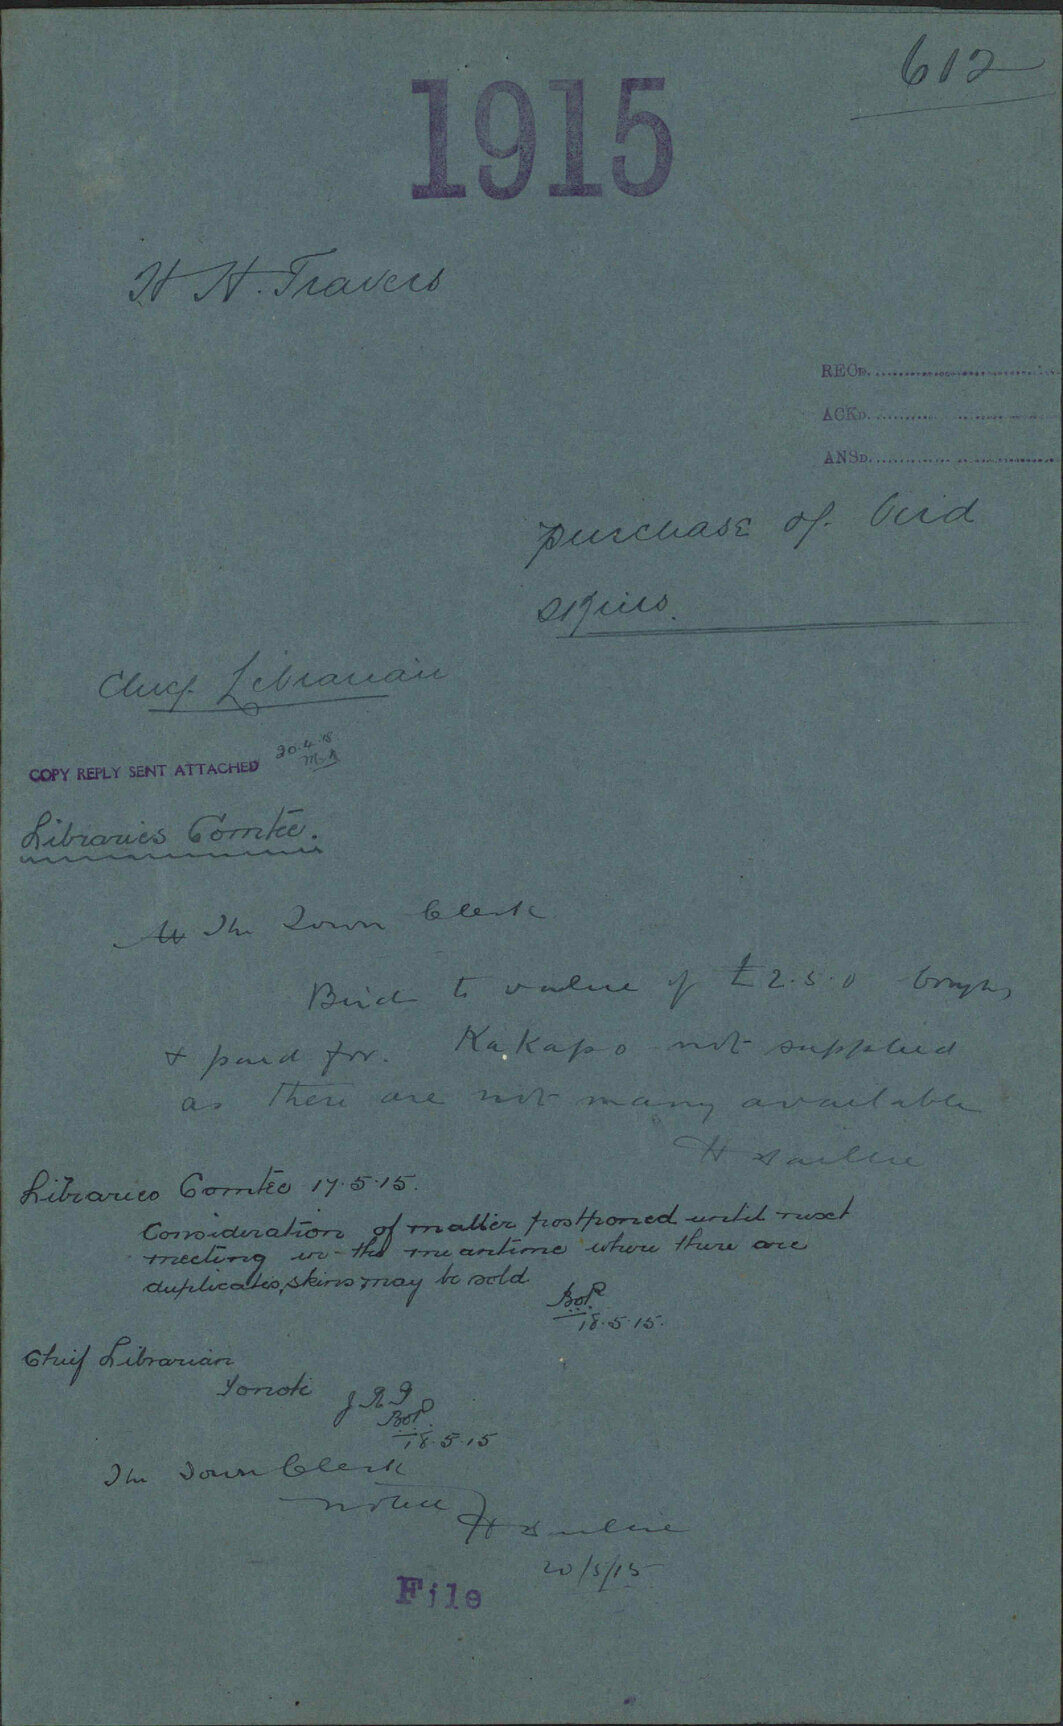 612
1915
H H. Travers
RECD.
ACKD.
ANSD.
purchase of bird
skins.
Chief Librarian
COPY REPLY SENT ATTACHED 20.4.15
Libraries Comtee.
The Town Clerk
Birds to value of £2.5.0 bought
+ paid for. Kakapo not supplied
as there are not many available
H Baillie
Libraries Comtee 17.5.15.
Consideration of matter postponed until next
meeting in the meantime where there are
duplicates, skins may be sold
18.5.15.
Chief Librarian
To note
18.5.15
The Town Clerk
noted
H Baillie
20/5/15
File